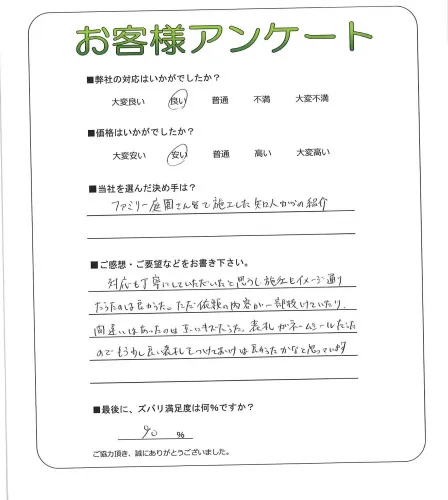 お客様アンケート
■弊社の対応はいかがでしたか？
大変良い 良い 普通 不満 大変不満
■価格はいかがでしたか？
大変安い 安い 普通 高い 大変高い
■当社を選んだ決め手は？
ファミリー庭園さんで施工した知人からの紹介
■ご感想・ご要望などをお書き下さい。
対応も丁寧にしていただいたと思うし、施工もイメージ通り
だったのは良かった。ただ依頼の内容が一部抜けていたり、
間違いはあったのは
表札がネームシールだった
のでもう少し良い表札をつけておけば良かったかなと思っています
■最後に、ズバリ満足度は何%ですか？
90 %
ご協力頂き、誠にありがとうございました。